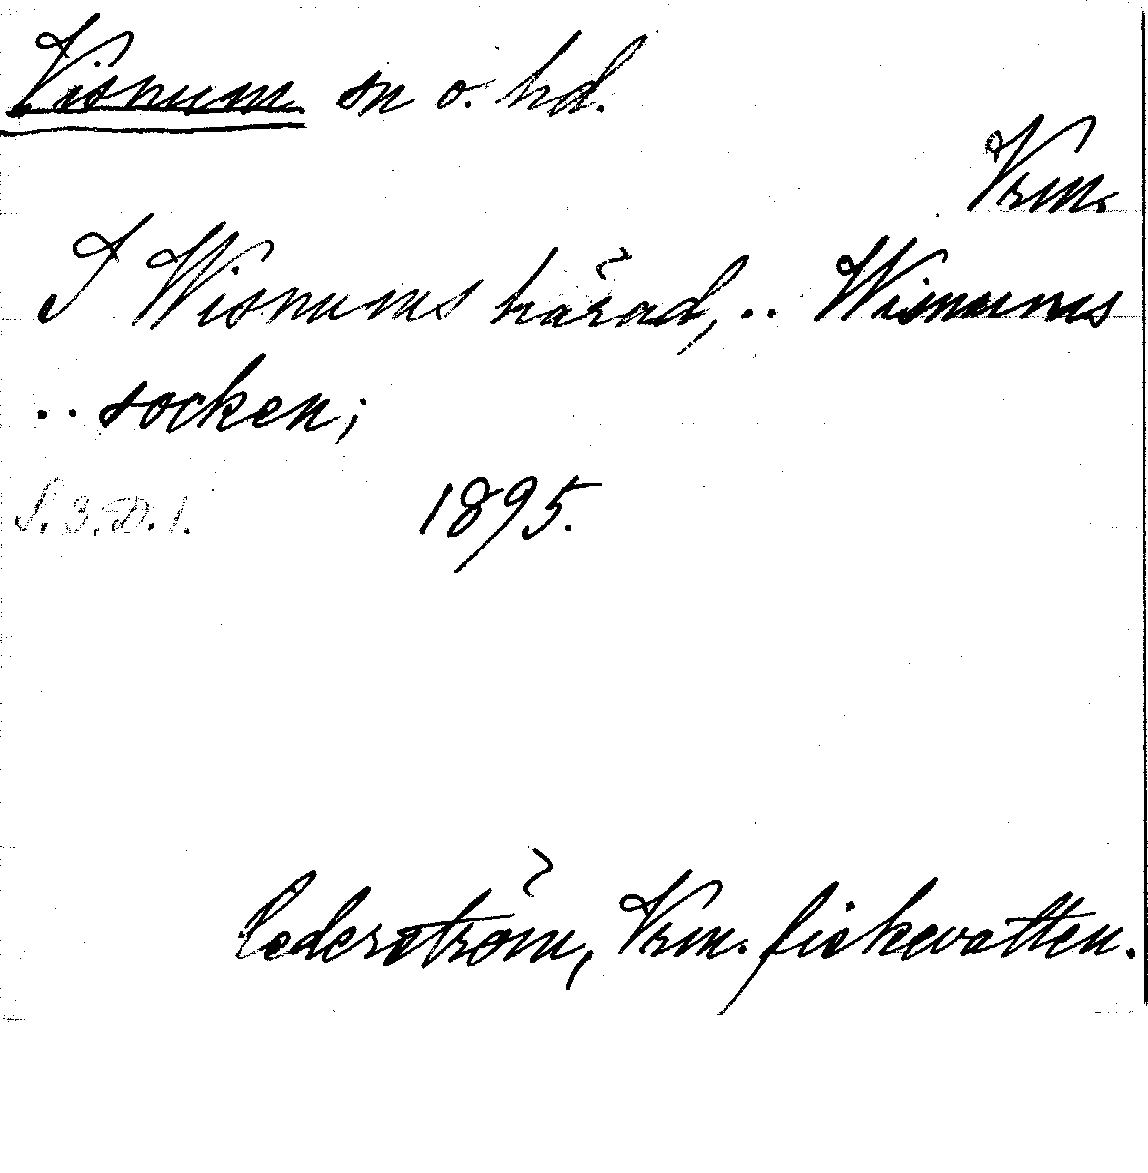 Visnum sn o. hd.
Vrm.
I Wisnums härad, .. Wisnums
.. socken;
S. 3. D. 1. 1895.
Cederström, Vrm. fiskevatten.